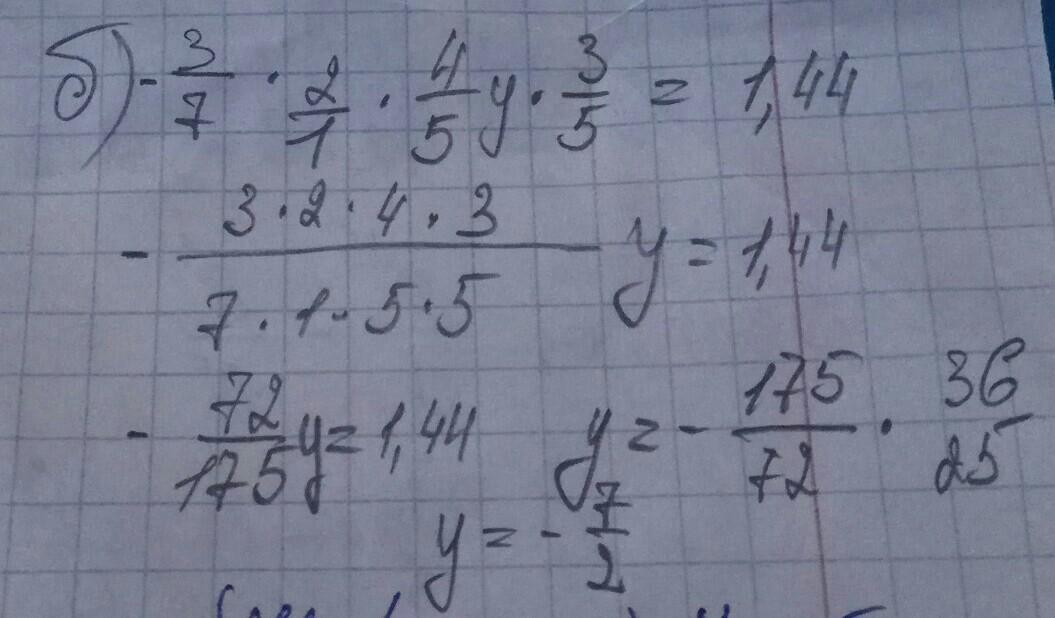 б) - 3/7 · 2/1 · 4/5 y · 3/5 = 1,44
- (3 · 2 · 4 · 3)/(7 · 1 · 5 · 5) y = 1,44
- 72/175 y = 1,44 y = - 175/72 · 36/25
y = - 7/2